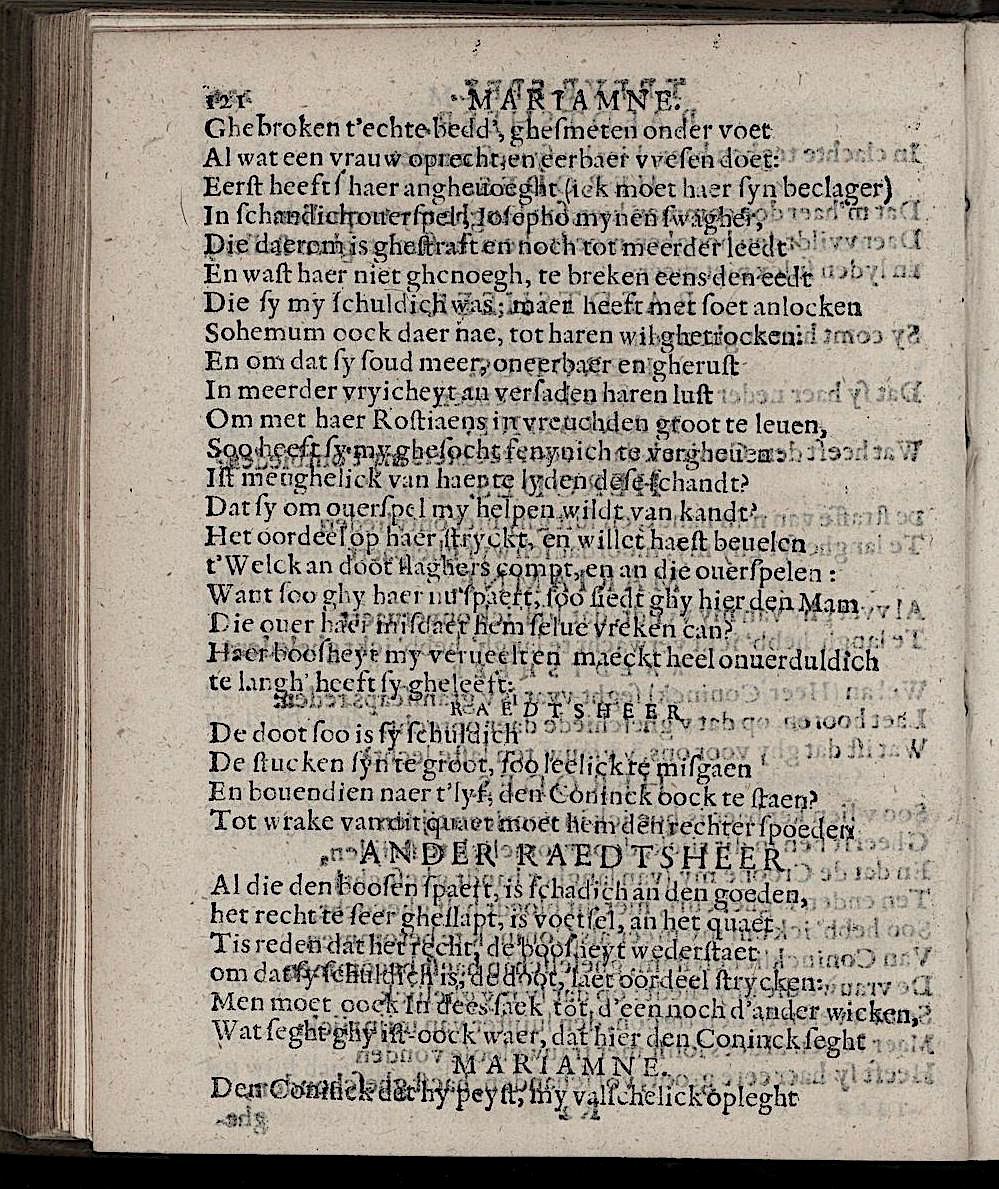 121 MARIAMNE.
Ghebroken t'echte bedd', gheſmeten onder voet
Al wat een vrauw oprecht, en eerbaer vveſen doet:
Eerſt heeft ſ'haer angheuoeght (iek moet haer ſyn beclager)
In ſchandich ouerſpel, Joſepho mynen ſwagher,
Die daerom is gheſtraft en noch tot meerder leedt
En waſt haer niet ghenoegh, te breken eens den eedt
Die ſy my ſchuldich was; maer heeft met ſoet anlocken
Sohemum oock daer nae, tot haren wil ghetrocken:
En om dat ſy ſoud meer, oneerbaer en gheruſt
In meerder vryicheyt an verſaden haren luſt
Om met haer Roſtiaens in vreuchden groot te leuen,
Soo heeft ſy my gheſocht fenynich te vergheuen:
Iſt meughelick van haer te lyden deſe ſchandt?
Dat ſy om ouerſpel my helpen wildt van kandt?
Het oordeel op haer ſtryckt, en willet haeſt beuelen
t'Welck an doot ſlaghers compt, en an die ouerſpelen:
Want ſoo ghy haer nu ſpaert, ſoo ſiedt ghy hier den Mam
Die ouer haer miſdaet hem ſelue vreken can?
Haer booſheyt my verueelt en maeckt heel onuerduldich
te langh' heeft ſy gheleeft:
RAEDTSHEER
De doot ſoo is ſy ſchuldich
De ſtucken ſyn te groot, ſoo leelick te miſgaen
En bouendien naer t'lyf, den Coninck oock te ſtaen?
Tot wrake van dit quaet moet hem den rechter ſpoeden
ANDER RAEDTSHEER
Al die den booſen ſpaert, is ſchadich an den goeden,
het recht te ſeer gheſlapt, is voetſel, an het quaet
Tis reden dat het recht, de booſheyt wederſtaet
om dat ſy ſchuldich is, de doot, laet oordeel ſtrycken:
Men moet oock In dees ſaek tot, d'een noch d'ander wicken,
Wat ſeght ghy iſt-oock waer, dat hier den Coninck ſeght
MARIAMNE.
Den Coninck dat hy peyſt, my valſchelick opleght
ghe-